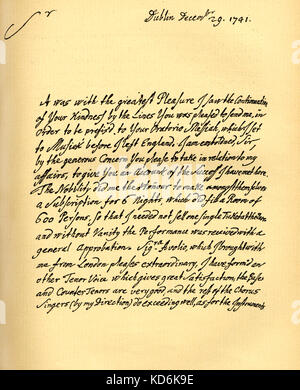 Sr
Dublin Decembr 29. 1741.
It was with the greatest Pleasure I saw the Continuation
of Your Kindness by the Lines You was pleased to send me, in
Order to be prefix'd to Your Oratorio Messiah, which I set
to Musick before I left England. I am emboldned, Sir,
by the generous Concern You please to take in relation to my
affairs, to give You an Account of the Success I have met here.
The Nobility did me the Honour to make amongst themselves
a Subscription for 6 Nights, which did fill a Room of
600 Persons, so that I needed not sell one single Ticket at the Door.
and without Vanity the Performance was received with a
general Approbation. Sigra Avolio, which I brought with
me from London pleases extraordinary, I have form'd an
other Tenor Voice which gives great Satisfaction, the Basses
and Counter Tenors are very good, and the rest of the Chorus
Singers (by my Direction) do exceeding well, as for the Instruments
alamy
alamy stock photo
KD6K9E